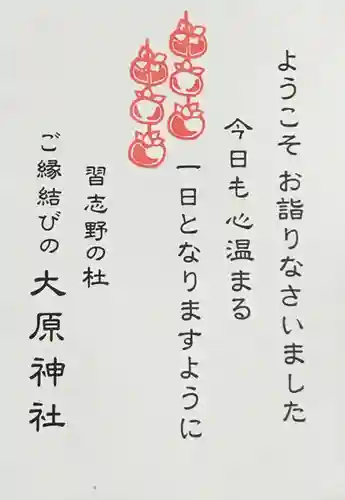 ようこそ お詣りなさいました
今日も 心温まる
一日となりますように
習志野の杜
ご縁結びの 大原神社